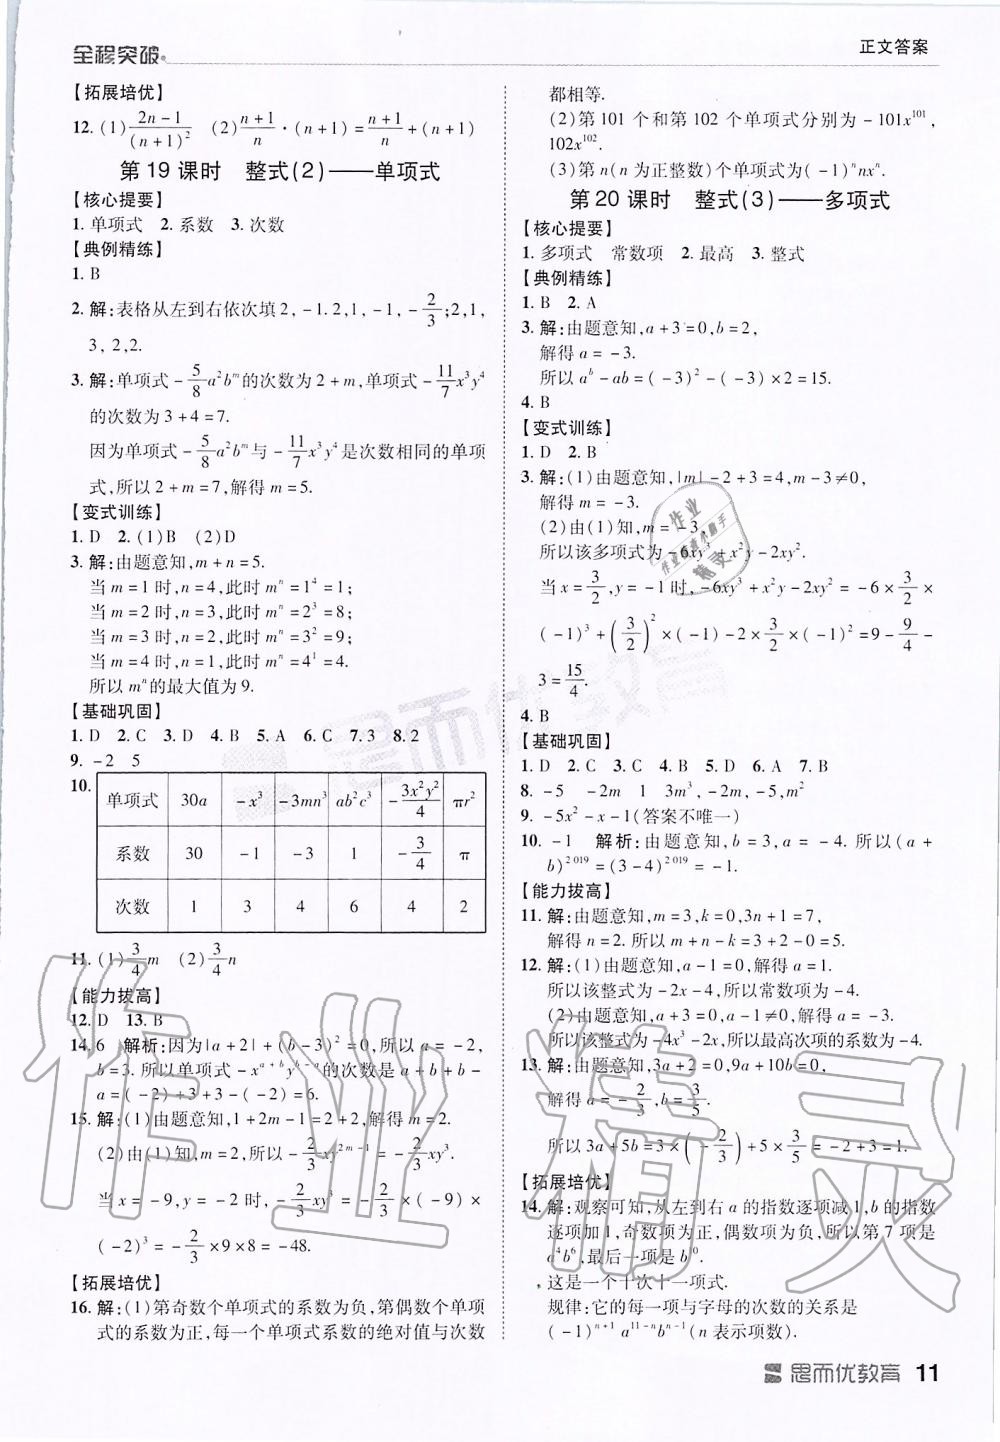 全程突破
正文答案
【拓展培优】
12. (1) (2n-1)/(n+1)²  (2) (n+1)/n·(n+1)=(n+1)/n+(n+1)
第 19 课时　整式(2)——单项式
【核心提要】
1. 单项式  2. 系数  3. 次数
【典例精练】
1. B
2. 解:表格从左到右依次填 2, -1.2,1, -1, -2/3;2,1,
3, 2,2.
3. 解:单项式 -5/8 a²bᵐ 的次数为 2+m,单项式 -11/7 x³y⁴
的次数为 3+4=7.
因为单项式 -5/8 a²bᵐ 与 -11/7 x³y⁴ 是次数相同的单项
式,所以 2+m=7,解得 m=5.
【变式训练】
1. D  2. (1)B  (2)D
3. 解:由题意知,m+n=5.
当 m=1 时,n=4,此时 mⁿ=1⁴=1;
当 m=2 时,n=3,此时 mⁿ=2³=8;
当 m=3 时,n=2,此时 mⁿ=3²=9;
当 m=4 时,n=1,此时 mⁿ=4¹=4.
所以 mⁿ 的最大值为 9.
【基础巩固】
1. D  2. C  3. D  4. B  5. A  6. C  7. 3  8. 2
9. -2  5
10. 单项式  30a  -x³  -3mn³  ab²c³  -3x²y²/4  πr²
系数  30  -1  -3  1  -3/4  π
次数  1  3  4  6  4  2
11. (1) 3/4 m  (2) 3/4 n
【能力拔高】
12. D  13. B
14. 6  解析:因为|a+2|+(b-3)²=0,所以 a=-2,
b=3. 所以单项式 -xᵃ⁺ᵇyᵇ⁻ᵃ 的次数是 a+b+b-
a=(-2)+3+3-(-2)=6.
15. 解:(1)由题意知,1+2m-1=2+2,解得 m=2.
(2)由(1)知, -2/3 xy²ᵐ⁻¹= -2/3 xy³.
当 x=-9,y=-2 时, -2/3 xy³= -2/3×(-9)×
(-2)³= -2/3×9×8=-48.
【拓展培优】
16. 解:(1)第奇数个单项式的系数为负,第偶数个单项
式的系数为正,每一个单项式系数的绝对值与次数
都相等.
(2)第 101 个和第 102 个单项式分别为 -101x¹⁰¹,
102x¹⁰².
(3)第 n(n 为正整数)个单项式为(-1)ⁿnxⁿ.
第 20 课时　整式(3)——多项式
【核心提要】
1. 多项式　常数项  2. 最高  3. 整式
【典例精练】
1. B  2. A
3. 解:由题意知,a+3=0,b=2,
解得 a=-3.
所以 aᵇ-ab=(-3)²-(-3)×2=15.
4. B
【变式训练】
1. D  2. B
3. 解:(1)由题意知,|m|-2+3=4,m-3≠0,
解得 m=-3.
(2)由(1)知,m=-3,
所以该多项式为 -6xy³+x²y-2xy².
当 x=3/2,y=-1 时, -6xy³+x²y-2xy²=-6×3/2×
(-1)³+(3/2)²×(-1)-2×3/2×(-1)²=9-9/4-
3=15/4.
4. B
【基础巩固】
1. D  2. C  3. B  4. B  5. D  6. A  7. B
8. -5  -2m  1  3m³, -2m, -5,m²
9. -5x²-x-1(答案不唯一)
10. -1  解析:由题意知,b=3,a=-4. 所以(a+
b)²⁰¹⁹=(3-4)²⁰¹⁹=-1.
【能力拔高】
11. 解:由题意知,m=3,k=0,3n+1=7,
解得 n=2. 所以 m+n-k=3+2-0=5.
12. 解:(1)由题意知,a-1=0,解得 a=1.
所以该整式为 -2x-4,所以常数项为 -4.
(2)由题意知,a+3=0,a-1≠0,解得 a=-3.
所以该整式为 -4x³-2x,所以最高次项的系数为 -4.
13. 解:由题意知,3a+2=0,9a+10b=0,
解得 a=-2/3,b=3/5.
所以 3a+5b=3×(-2/3)+5×3/5=-2+3=1.
【拓展培优】
14. 解:观察可知,从左到右 a 的指数逐项减1,b 的指数
逐项加1,奇数项为正,偶数项为负,所以第 7 项是
a⁴b⁶,最后一项是 b¹⁰.
这是一个十次十一项式.
规律:它的每一项与字母的次数的关系是
(-1)ⁿ⁺¹a¹¹⁻ⁿbⁿ⁻¹(n 表示项数).
思而优教育 11
思而优教育
作业精灵